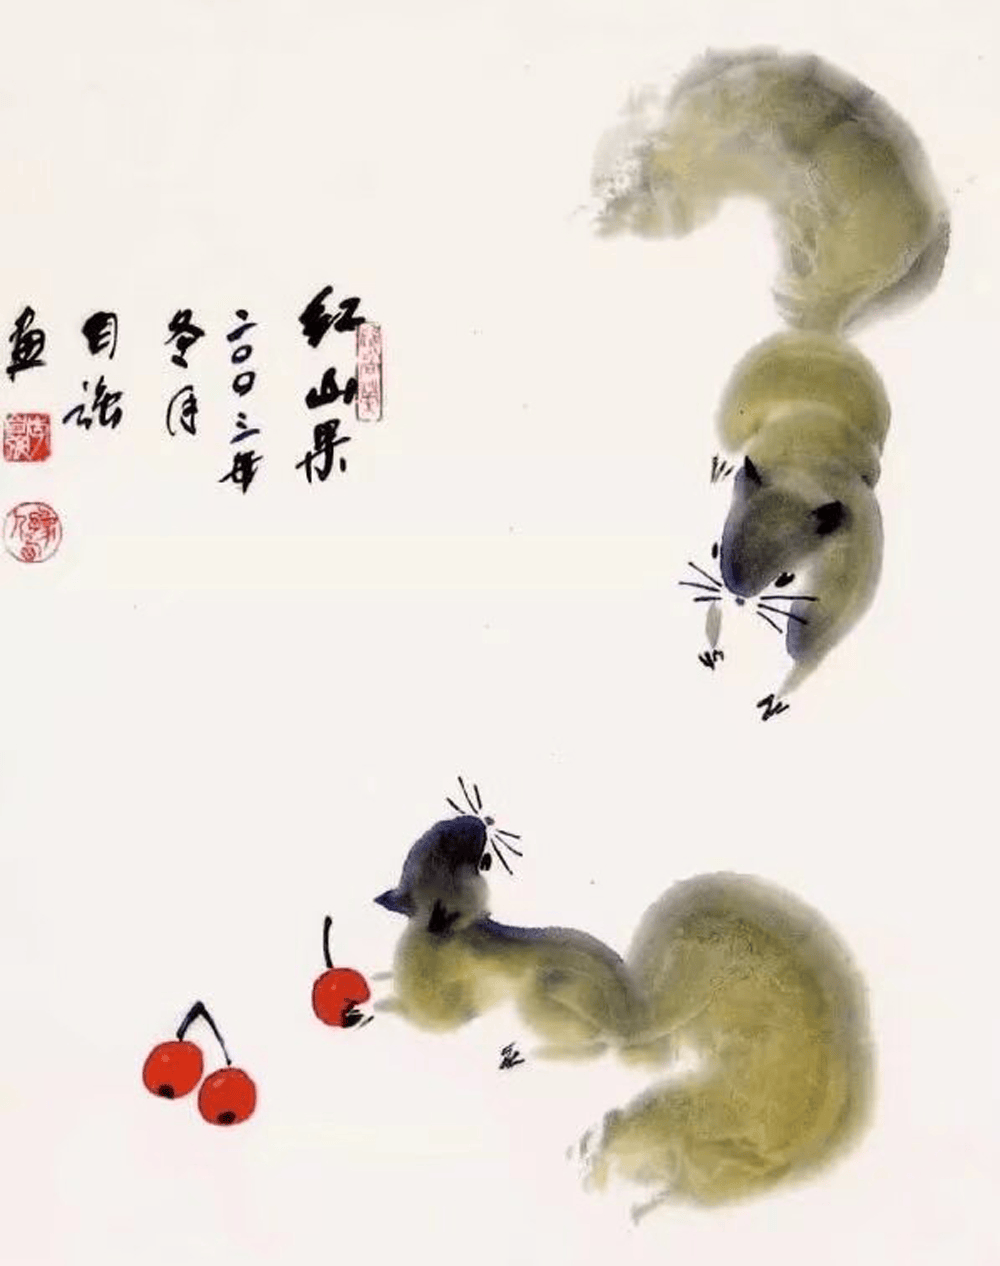 红山果
二〇〇三年
冬月
自强
画